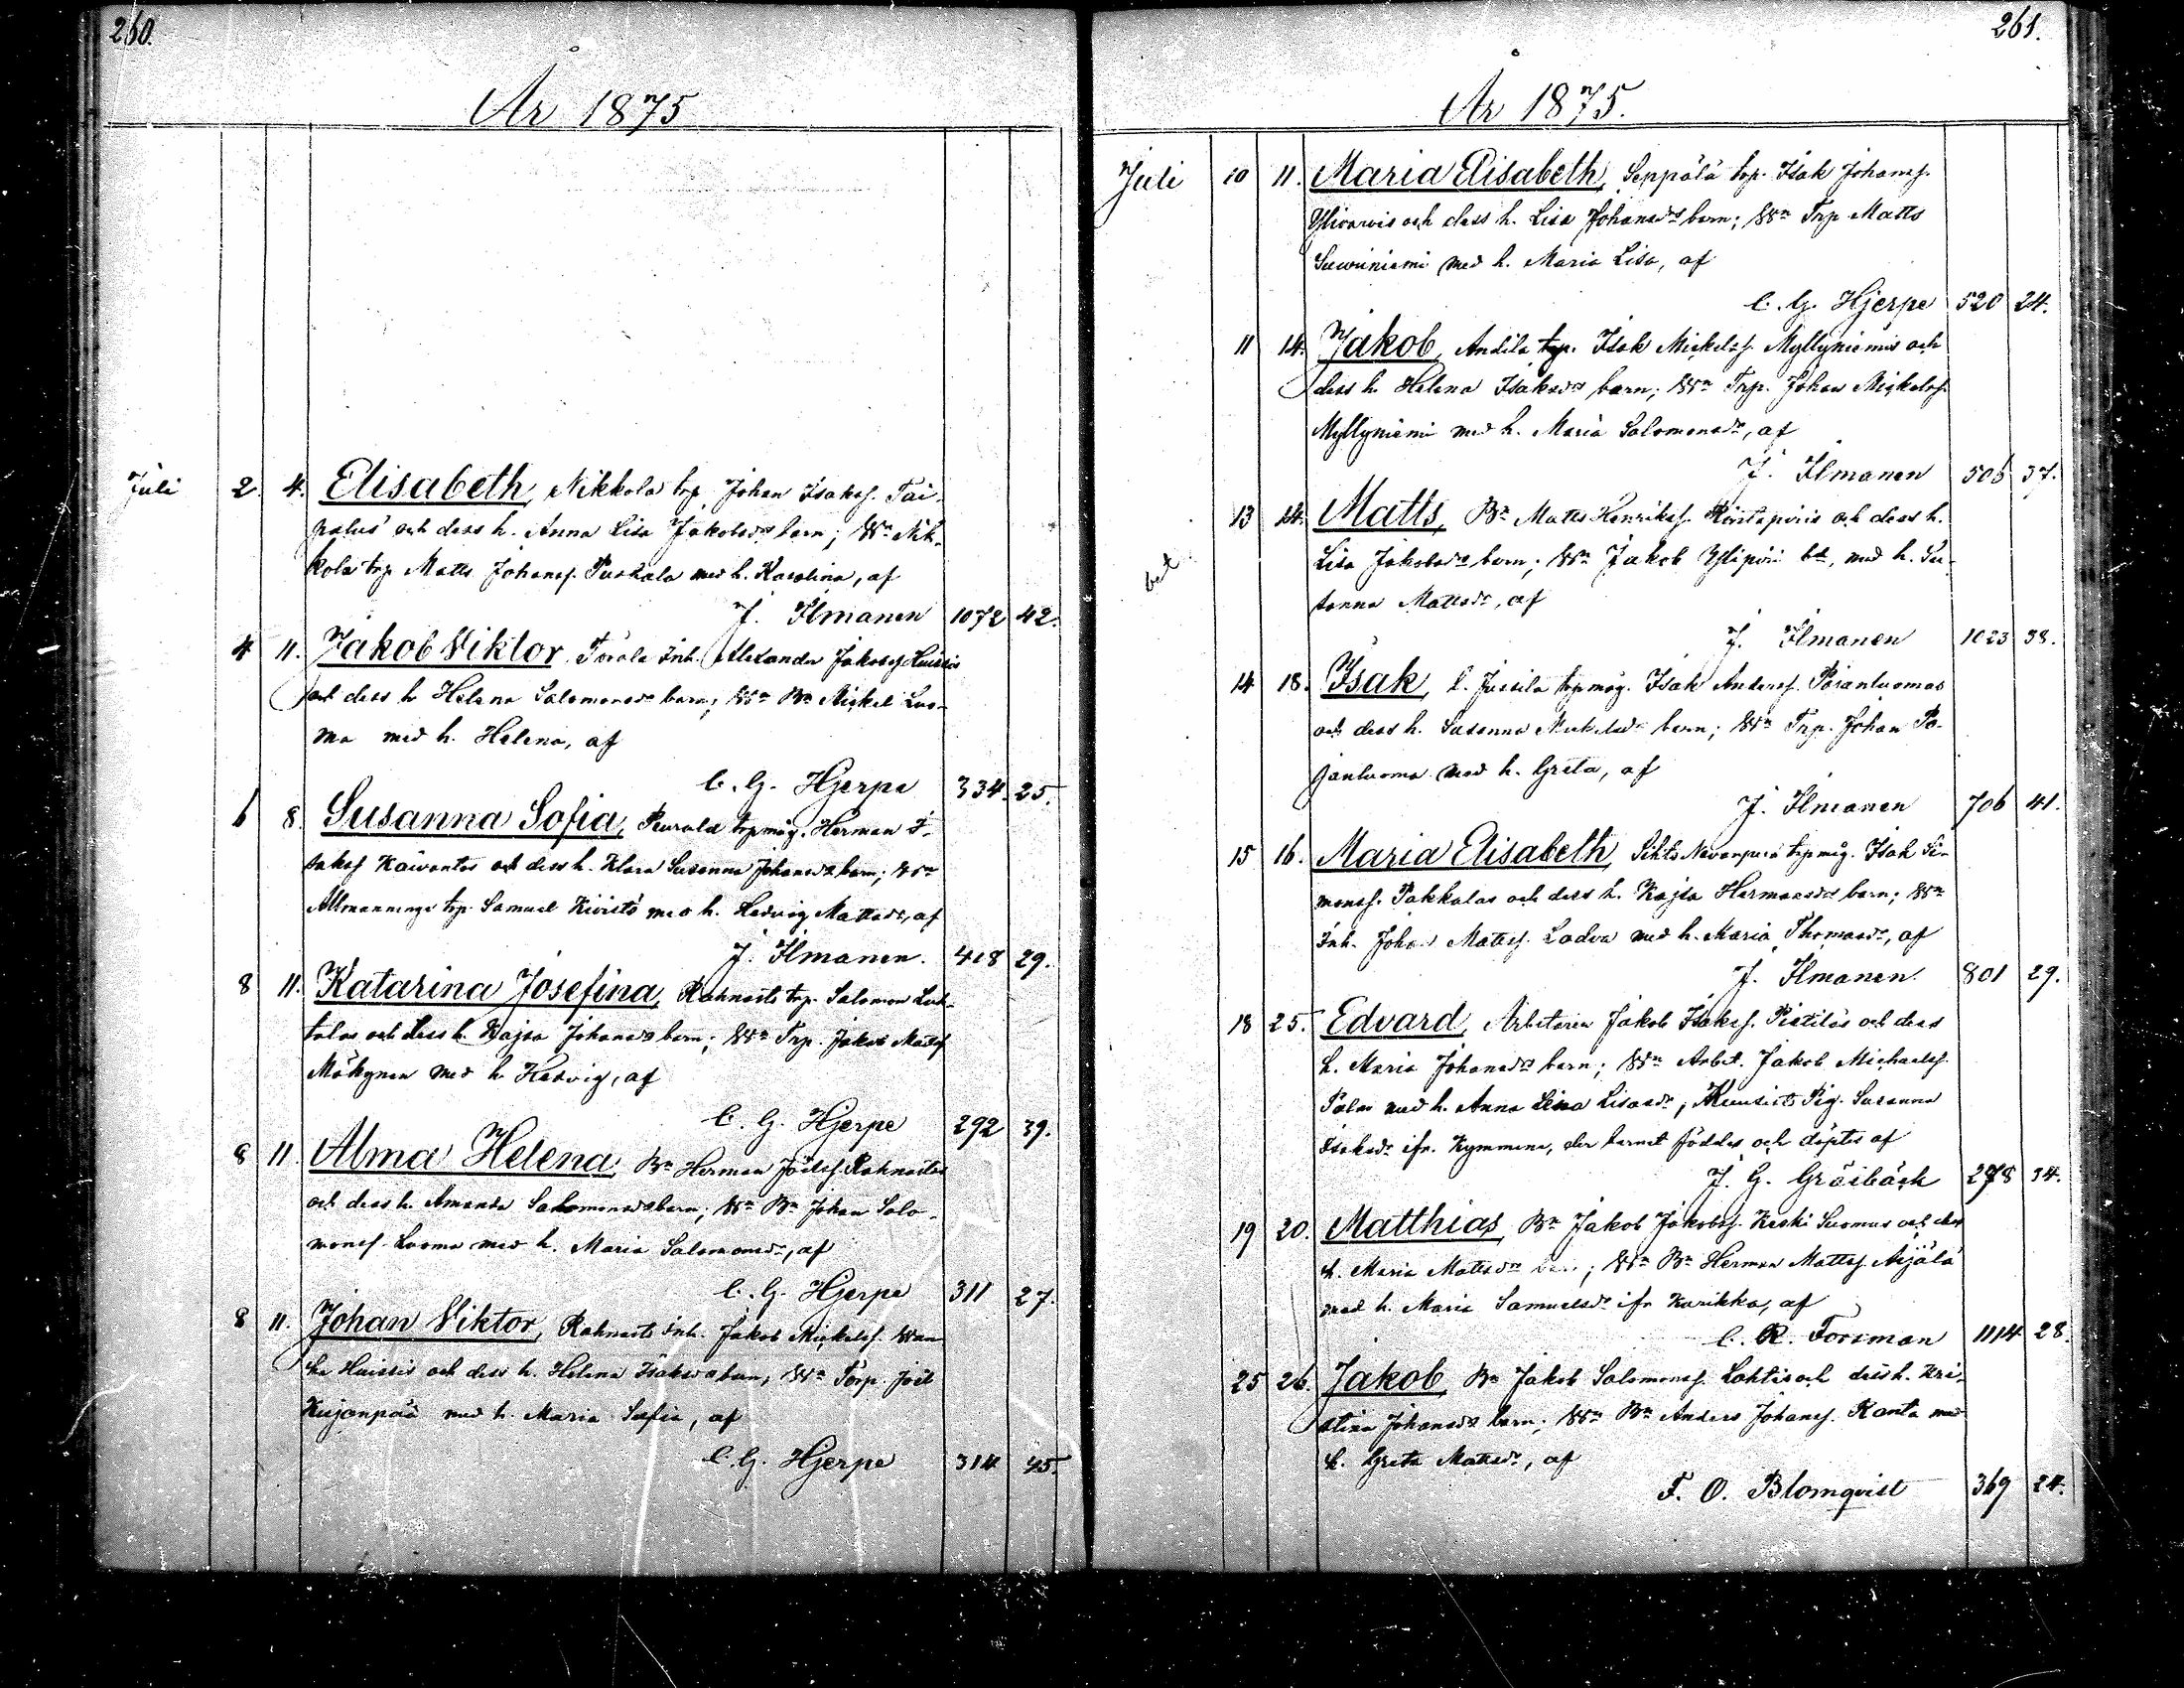 260.
År 1875
Juli 2 4. Elisabeth, Nikkola trp. Johan Isakss. Tai-
palus och dess h. Anna Lisa Jakobsdr barn; Wn Nik-
kola trp. Matts Johanss. Puskala med h. Karolina, af
J. Ilmanen 1072 42.
4 11. Jakob Viktor, Törölä Inh. Alexander Jakobss. Huissis
och dess h Helena Salomonsdr barn; Wn Bn Mickel Luo-
ma med h. Helena, af
C. G. Hjerpe 334. 25.
6 8. Susanna Sofia, Peurala trpmåg. Herman I-
sakss Kaivantos och dess h. Klara Susanna Johansdr barn; Wn
Allmannings trp. Samuel Kivistö med h. Hedvig Mattsdr, af
J. Ilmanen. 418 29.
8 11. Katarina Josefina, Rahnasto trp. Salomon Luh-
talas och dess h. Kajsa Johansdr barn; Wn Trp. Jakob Mattss
Mökynen med h. Hedvig, af
C. G. Hjerpe 292 39.
8 11. Alma Helena, Bn Herman Joelss. Rahnastos
och dess h. Amanda Salomonsdr barn; Wn Bn Johan Salo-
monss. Luoma med h. Maria Salomonsdr, af
C. G. Hjerpe 311 27.
8 11. Johan Viktor, Rahnasto Inh. Jakob Mickelss. Wan-
ha Huissis och dess h. Helena Isaksdr barn; Wn Torp. Joel
Kujanpää med h. Maria Sofia, af
C. G. Hjerpe 314 45.
261.
År 1875.
Juli 10 11. Maria Elisabeth, Seppälä trp. Isak Johanss.
Ylivarvis och dess h. Lisa Johansdr barn; Wn Trp Matts
Suviniemi med h. Maria Lisa, af
C. G. Hjerpe 520 24.
11 14. Jakob, Andila trp. Isak Mickelss. Myllyniemis och
dess h. Helena Isaksdr barn; Wn Trp. Johan Mickelss.
Myllyniemi med h. Maria Salomonsdr, af
J. Ilmanen 506 37.
13 14. Matts, Bn Matts Henrikss. Rintapiris och dess h.
Lisa Jakobsdr barn; Wn Jakob Ylipiri med h. Su-
sanna Mattsdr, af
J. Ilmanen 1023 38.
14 18. Isak, L. Jussila trpmåg. Isak Anderss. Pojanluomas
och dess h. Susanna Mickelsdr barn; Wn Trp. Johan Po-
janluoma med h. Greta, af
J. Ilmanen 706 41.
15 16. Maria Elisabeth, Sihto Nevanperä trpmåg. Isak Si-
monss. Pakkalas och dess h. Kajsa Hermansdr barn; Wn
Inh. Johan Mattss. Ladva med h. Maria Thomasdr, af
J. Ilmanen. 801 29.
18 25. Edvard, Arbetaren Jakob Isakss. Pietiläs och dess
h. Maria Johansdr barn; Wn Arbet. Jakob Michaelss.
Palm med h. Anna Lina Lisasdr, Pig. Susanna
Isaksdr ifr. Kymmene, der barnet föddes och döptes af
J. G. Gråsbäck 278 34.
19 20. Matthias, Bn Jakob Jakobss. Keski Luomas och dess
h. Maria Mattsdr barn; Wn Bn Herman Mattss. Äijälä
med h. Maria Samuelsdr ifr Kurikka, af
C. R. Forsman 1114 28.
25 26. Jakob, Bn Jakob Salomonss. Lahtis och dess h. Kri-
stina Johansdr barn; Wn Bn Anders Johanss. Ranta med
h. Greta Mattsdr, af
F. O. Blomqvist 369 24.